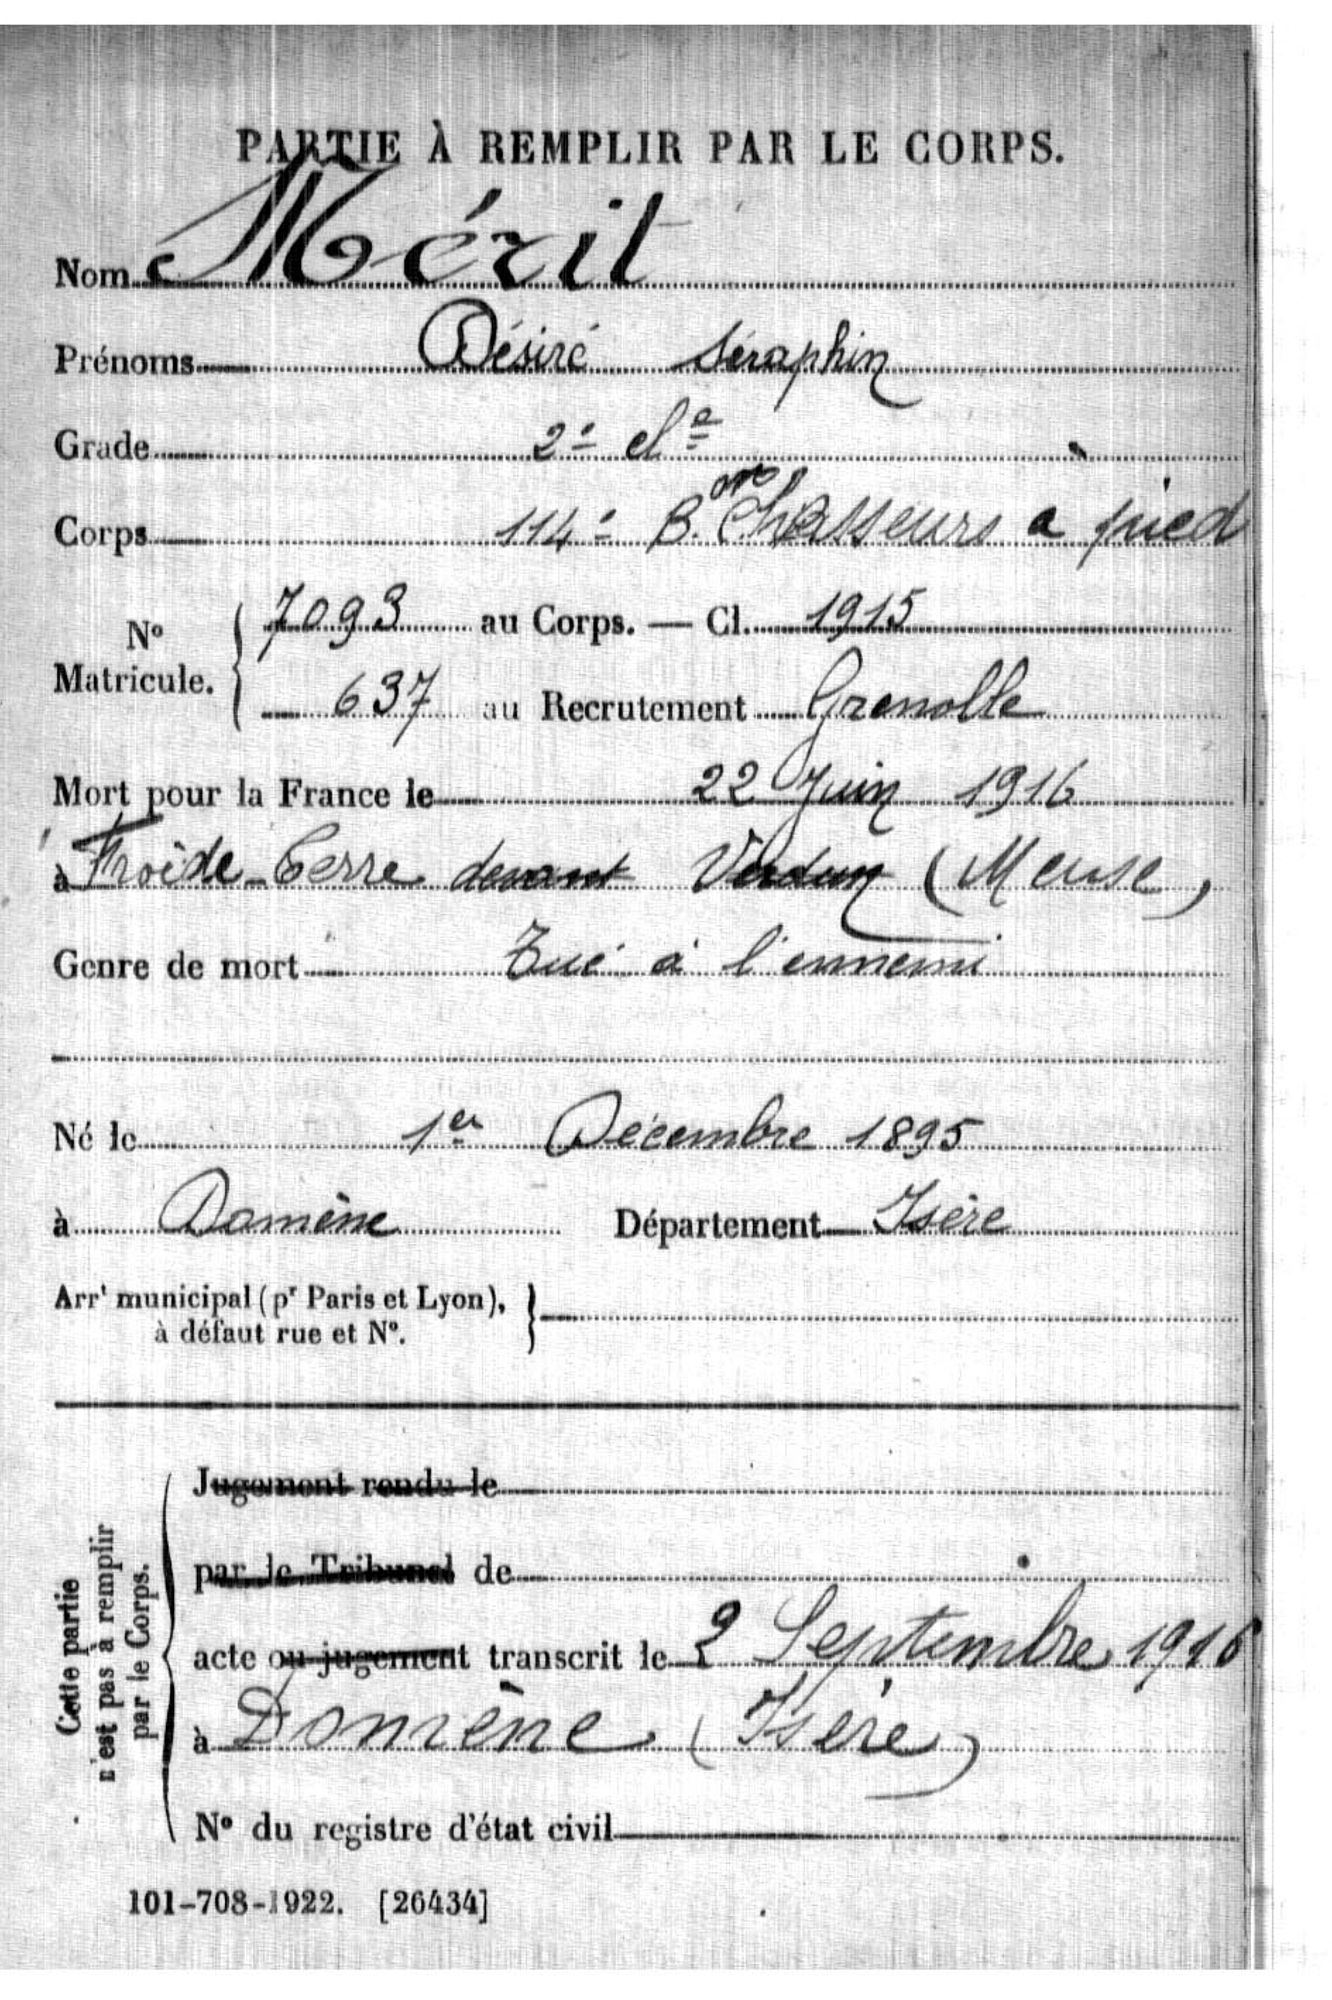 PARTIE À REMPLIR PAR LE CORPS.
Nom Mérit
Prénoms Désiré Séraphin
Grade 2e cle
Corps 114e B.on Chasseurs a pied
No Matricule. { 7093 au Corps. — Cl. 1915
637 au Recrutement Grenoble
Mort pour la France le 22 Juin 1916
à Froide-Terre devant Verdun (Meuse)
Genre de mort Tué à l'ennemi
Né le 1er Décembre 1895
à Domène Département Isère
Arrt municipal (pr Paris et Lyon),
à défaut rue et No.
Cette partie
n'est pas à remplir
par le Corps.
Jugement rendu le
par le Tribunal de
acte ou jugement transcrit le 2 Septembre 1916
à Domène (Isère)
No du registre d'état civil
101-708-1922. [26434]